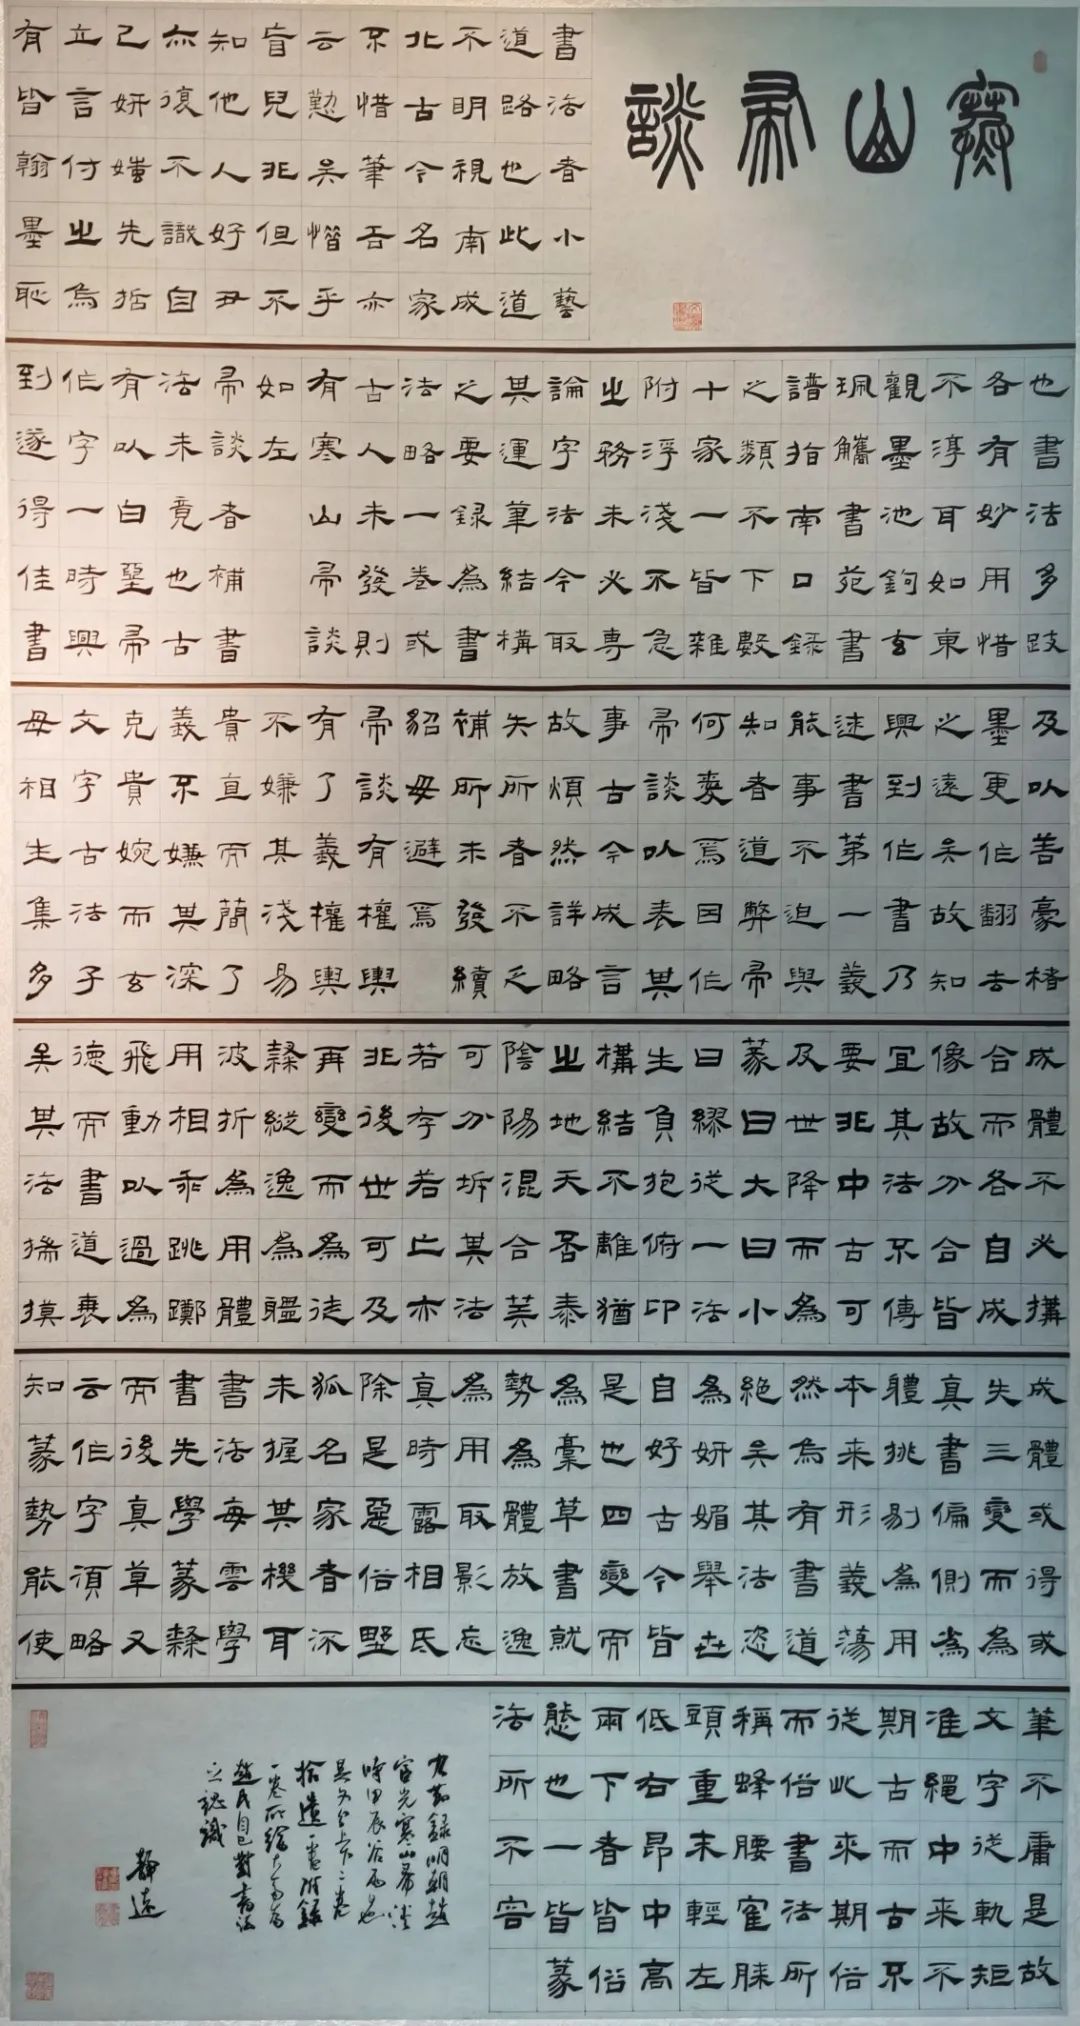 寒山帚談
書法者小藝
道路也此道
不明視南成
北古今名家
不惜筆吾亦
云懃矣惜乎
盲兒非但不
知他人好丑
亦復不識自
己妍媸先括
立言付之烏
有皆翰墨恥
也書法多跂
各有妙用惜
不淳耳如東
觀墨池鉤玄
珮觿書苑書
譜指南口録
之類不下數
十家一皆雜
附浮淺不急
之務未必専
論字法今取
其運筆結構
之要録為書
法略一卷或
古人未發則
有寒山帚談
如左
帚談者補書
法未竟也古
有以白堊帚
作字一時興
到遂得佳書
及以善豪楮
墨更作翻去
之遠矣故知
興到作書乃
逑書第一義
能事不迫與
知者道弊帚
何爰焉因作
帚談以表其
事古今成言
故煩然詳略
失所者不乏
補所未發續
貂毋避焉
帚談有權輿
有了義權輿
不嫌其淺易
貴直而簡了
義不嫌其深
克貴婉而玄
文字古法子
母相生集多
成體不必搆
合而各自成
像故分合皆
宜其法不傳
要非中古可
及世降而為
篆曰大曰小
曰繆従一法
生負抱俯卬
構結不離猶
之地天否泰
陰陽混合芙
可分坼其法
若存若亡亦
非後世可及
再變而為徒
隸縱逸為體
波折為用體
用相乖跳躑
飛動以過為
徳而書道喪
矣其法猶摸
成體或得或
失三變而為
真書偏側為
體挑剔為用
本来形義蕩
然烏有書道
絶矣其法恣
為妍媚舉世
自好古今皆
是也四變而
為稾草書就
勢為體放逸
為用取影忘
真時露相氐
除是惡俗墅
狐名家者不
未握其機耳
書法每雲學
書先學篆隸
而後真草又
云作字須略
知篆勢能使
筆不庸是故
文字従軌矩
准繩中来不
期古而古不
従此来期俗
而俗書法所
稱蜂腰寉膝
頭重末輕左
低右昂中高
兩下者皆俗
態也一皆篆
法所不容
右節録明朝趙
宧光寒山帚談
時甲辰谷雨也
其文分上下二卷
拾遺一卷附録
一卷所論
趙氏自己對書法
之認識
靜遠